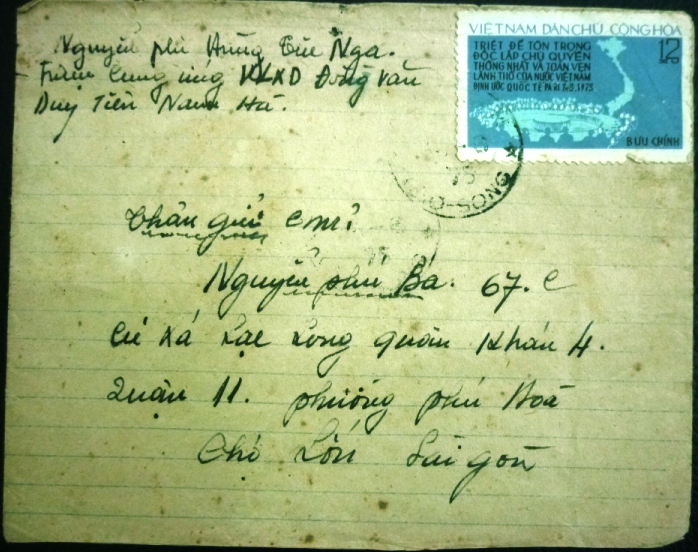 Nguyễn phú Hùng Tuế Nga.
Trạm Cung ứng VLXD Đồng văn
Duy Tiên Nam Hà.
VIỆT NAM DÂN CHỦ CỘNG HÒA
TRIỆT ĐỂ TÔN TRỌNG
ĐỘC LẬP CHỦ QUYỀN
THỐNG NHẤT VÀ TOÀN VẸN
LÃNH THỔ CỦA NƯỚC VIỆT NAM
ĐỊNH ƯỚC QUỐC TẾ PA RI 2.3.1973
12 xu
BƯU CHÍNH
75
Thân gửi em:
Nguyễn phú Bá. 67. C
Cư Xá Lạc Long quân Khán 4.
Quận 11. phường phú Hoà
Chợ Lớn Sài gòn